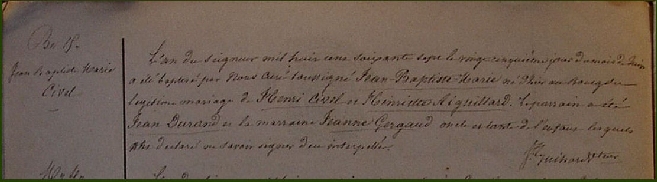 Be 18.
Jean Baptiste Marie
Civel
L'an du Seigneur mil huit cent soixante sept le vingt cinquième jour du mois de Juin
a été baptisé par Nous curé soussigné Jean-Baptiste-Marie né hier au Bourg du
légitime mariage de Henri Civel et Henriette Aiguillard. Le parrain a été
Jean Durand et la marraine Jeanne Gergaud oncle et tante de l'enfant lesquels
ont déclaré ne savoir signer de ce interpellés.